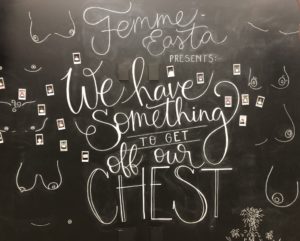 Femme-
Easta
PRESENTS:
We have
Something
TO GET
off our
CHEST